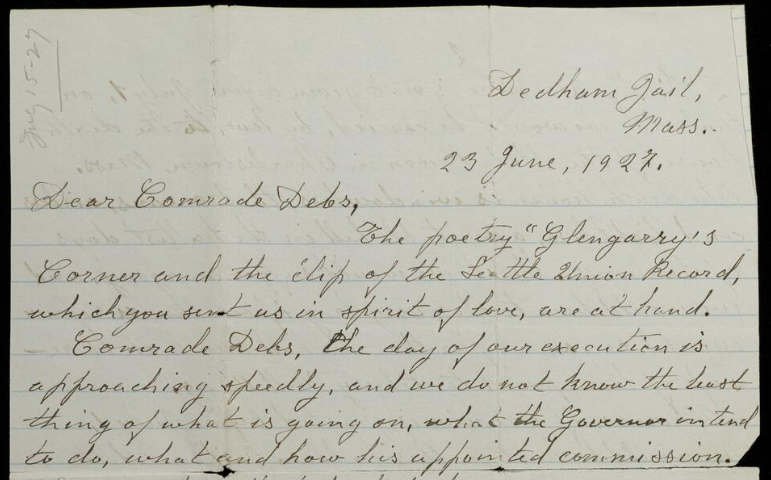 Aug 15-27
Dedham Jail,
Mass..
23 June, 1927.
Dear Comrade Debs,
The poetry "Glengarry's
Corner and the clip of the Seattle Union Record,
which you sent us in spirit of love, are at hand.
Comrade Debs, the day of our execution is
approaching speedly, and we do not know the least
thing of what is going on, what the Governor intend
to do, what and how his appointed commission.